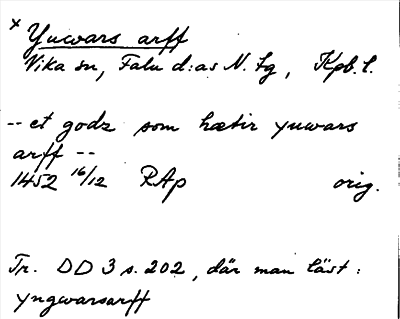 x Yuwars arff
Vika sn, Falu d:as N. tg, Kpb. l.
-- et godz som hætir yuwars
arff --
1452 16/12 RAp orig.
Tr. DD 3 s. 202, där man läst:
yngwarsarff